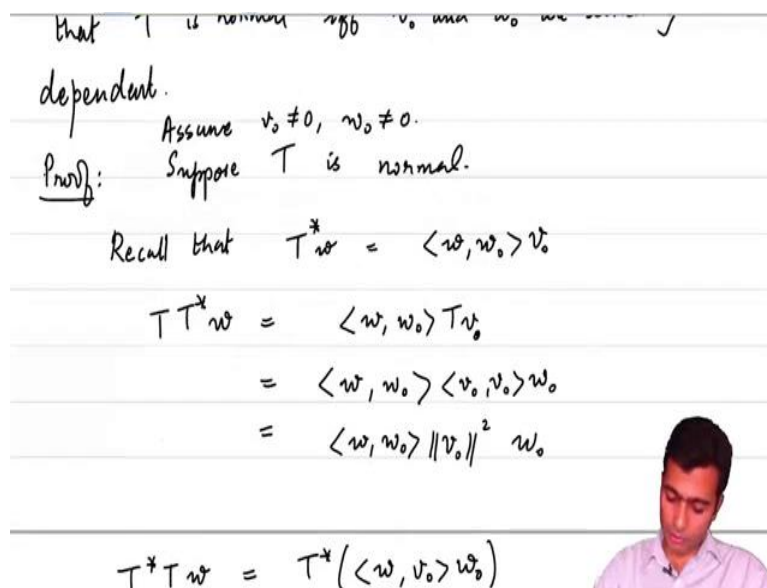 that T is normal iff v₀ and w₀ are
dependent.
Assume v₀ ≠ 0, w₀ ≠ 0.
Proof: Suppose T is normal.
Recall that T*w = <w, w₀> v₀
T T*w = <w, w₀> T v₀
= <w, w₀> <v₀, v₀> w₀
= <w, w₀> ||v₀||² w₀
T* T w = T*(<w, v₀> w₀)